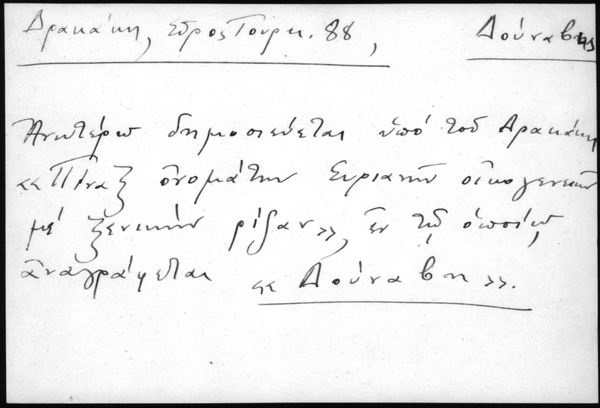 Δρακάκη, Σῦρος Τουρκ. 88, Δούναβης
Ἀνωτέρω δημοσιεύεται ὑπό τοῦ Δρακάκη
«Πίναξ ὀνομάτων Συριανῶν οἰκογενειῶν
μέ ξενικήν ρίζαν», ἐν τῷ ὁποίῳ
ἀναγράφεται «Δούναβη».